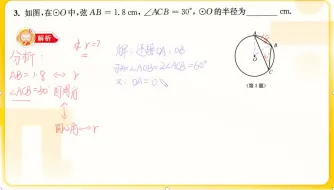 3. 如图,在⊙O中,弦AB=1.8 cm,∠ACB=30°,⊙O的半径为________cm.
解析
求 r=?
分析:
AB=1.8 ↔ r
∠ACB=30° 圆周角
↕
圆心角 ↔ r
解:连接OA、OB
∴∠AOB=2∠ACB=60°
又∵OA=O
A
B
C
O
(第3题)